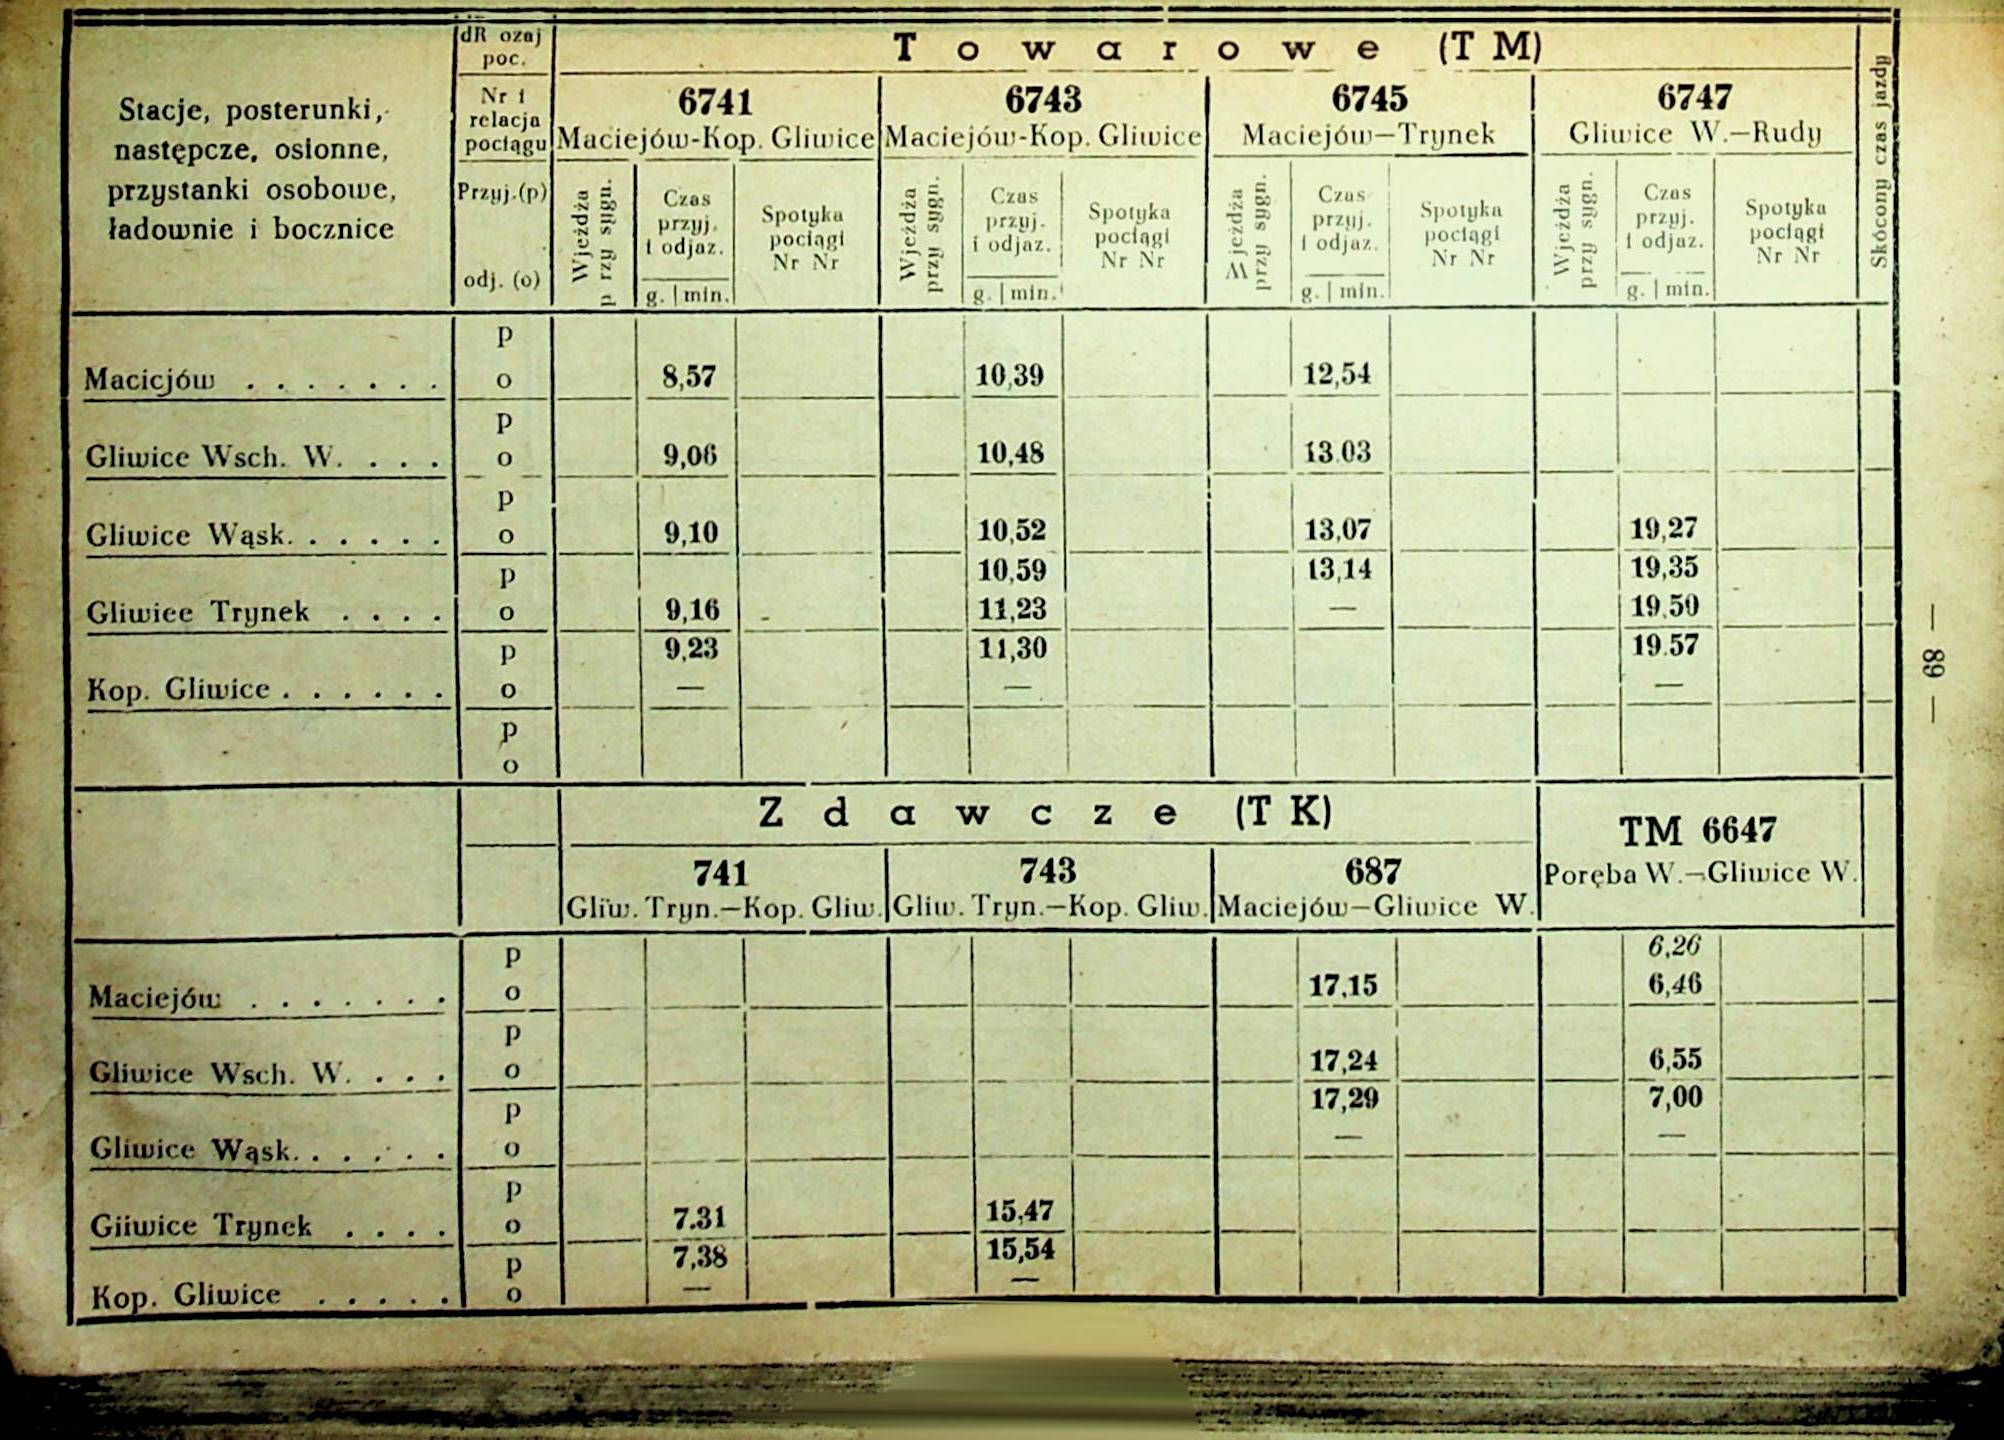 dR ozaj poc.
T o w a r o w e (T M)
Skócony czas jazdy
Stacje, posterunki,
następcze, osłonne,
przystanki osobowe,
ładownie i bocznice
Nr i
relacja
pociągu
Przyj.(p)
odj. (o)
6741 6743 6745 6747
Maciejów-Kop. Gliwice Maciejów-Kop. Gliwice Maciejów—Trynek Gliwice W.—Rudy
Wjeżdża przy sygn. Czas przyj. i odjaz. g. | min. Spotyka pociągi Nr Nr
Wjeżdża przy sygn. Czas przyj. i odjaz. g. | min. Spotyka pociągi Nr Nr
Wjeżdża przy sygn. Czas przyj. i odjaz. g. | min. Spotyka pociągi Nr Nr
Wjeżdża przy sygn. Czas przyj. i odjaz. g. | min. Spotyka pociągi Nr Nr
p
Macicjów . . . . . . . o 8,57 10,39 12,54
p
Gliwice Wsch. W. . . . o 9,06 10,48 13.03
p
Gliwice Wąsk. . . . . . o 9,10 10,52 13,07 19,27
p 10,59 13,14 19,35
Gliwice Trynek . . . . o 9,16 11,23 — 19.50
p 9,23 11,30 19.57
Kop. Gliwice . . . . . . o — — —
p
o
— 89 —
Z d a w c z e (T K)
TM 6647
741 743 687 Poręba W.—Gliwice W.
Gliw. Tryn.—Kop. Gliw. Gliw. Tryn.—Kop. Gliw. Maciejów—Gliwice W.
p 6,26
Maciejów . . . . . . . o 17,15 6,46
p
Gliwice Wsch. W. . . . o 17,24 6,55
p 17,29 7,00
Gliwice Wąsk. . . . . . o — —
p
Giiwice Trynek . . . . o 7.31 15,47
p 7,38 15,54
Kop. Gliwice . . . . . o — —